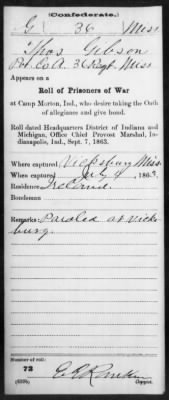 (Confederate.)
G 36 Miss
Thos Gibson
Pvt. Co A. 36 Regt. Miss
Appears on a
Roll of Prisoners of War
at Camp Morton, Ind., who desire taking the Oath
of allegiance and give bond.
Roll dated Headquarters District of Indiana and
Michigan, Office Chief Provost Marshal, In-
dianapolis, Ind., Sept. 7, 1863.
Where captured Vicksburg Miss
When captured July 4, 1863.
Residence Ireland.
Bondsman
Remarks: Paroled at Vicks-
burg.
Number of roll:
72
Copyist.